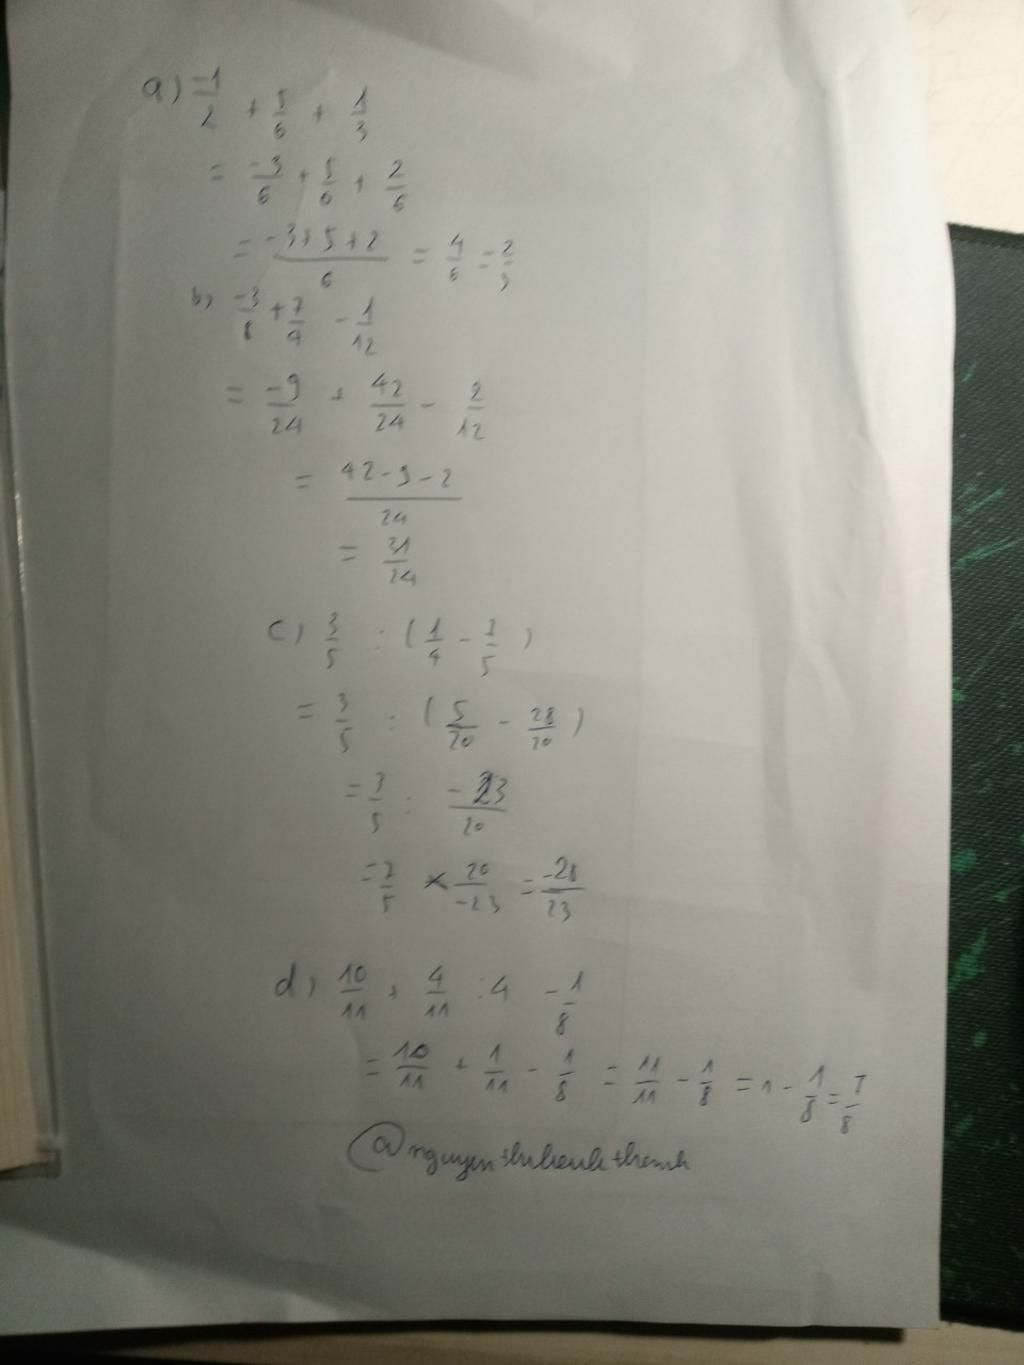 a) -1/2 + 5/6 + 1/3
= -3/6 + 5/6 + 2/6
= -3+5+2/6 = 4/6 = 2/3
b) -3/8 + 7/4 - 1/12
= -9/24 + 42/24 - 2/12
= 42-9-2/24
= 31/24
c) 3/5 : (1/4 - 7/5)
= 3/5 : (5/20 - 28/20)
= 3/5 : -23/20
= 7/5 × 20/-23 = -28/23
d) 10/11 + 4/11 : 4 - 1/8
= 10/11 + 1/11 - 1/8 = 11/11 - 1/8 = 1 - 1/8 = 7/8